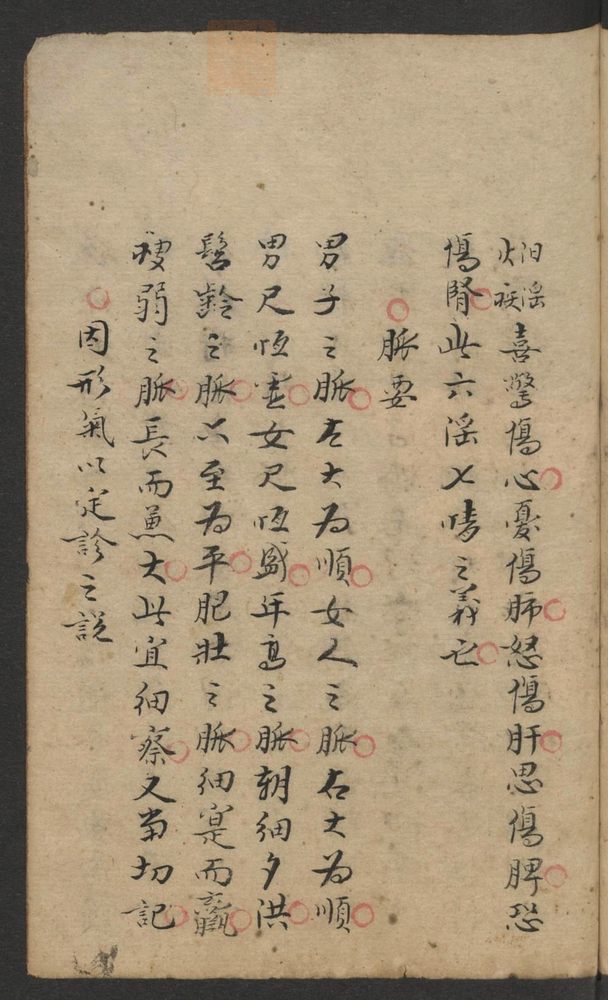 喜驚傷心憂傷肺怒傷肝思傷脾恐
傷腎此六滛七情之義也
脈要
男子之脈左大為順女人之脈右大為順
男尺恆虛女尺恆盛年高之脈朝細夕洪
髫齡之脈六至為平肥壯之脈細寔而羸
瘦弱之脈長而兼大此宜細察又當切記
因形氣以定診之說